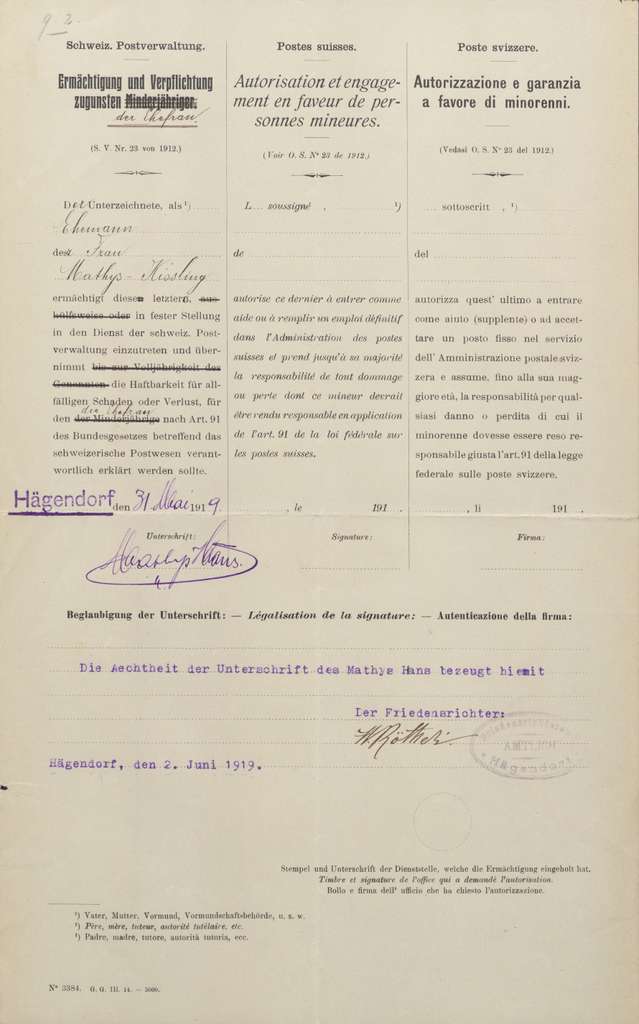 9. 2.
Schweiz. Postverwaltung.
Ermächtigung und Verpflichtung
zugunsten Minderjähriger.
der Ehefrau
(S. V. Nr. 23 von 1912.)
Der Unterzeichnete, als ¹)
Ehemann
der Frau
Mathys-Kissling
ermächtigt diese letztere, aus-
hülfsweise oder in fester Stellung
in den Dienst der schweiz. Post-
verwaltung einzutreten und über-
nimmt bis zur Volljährigkeit des
Genannten die Haftbarkeit für all-
fälligen Schaden oder Verlust, für
die Ehefrau
den der Minderjährige nach Art. 91
des Bundesgesetzes betreffend das
schweizerische Postwesen verant-
wortlich erklärt werden sollte.
Hägendorf den 31 Mai 1919.
Unterschrift:
Mathys Hans.
Postes suisses.
Autorisation et engage-
ment en faveur de per-
sonnes mineures.
(Voir O. S. N° 23 de 1912.)
L... soussigné , ¹)
de
autorise ce dernier à entrer comme
aide ou à remplir un emploi définitif
dans l'Administration des postes
suisses et prend jusqu'à sa majorité
la responsabilité de tout dommage
ou perte dont ce mineur devrait
être rendu responsable en application
de l'art. 91 de la loi fédérale sur
les postes suisses.
, le 191
Signature:
Poste svizzere.
Autorizzazione e garanzia
a favore di minorenni.
(Vedasi O. S. N° 23 del 1912.)
sottoscritt , ¹)
del
autorizza quest' ultimo a entrare
come aiuto (supplente) o ad accet-
tare un posto fisso nel servizio
dell' Amministrazione postale sviz-
zera e assume, fino alla sua mag-
giore età, la responsabilità per qual-
siasi danno o perdita di cui il
minorenne dovesse essere reso re-
sponsabile giusta l'art. 91 della legge
federale sulle poste svizzere.
, li 191
Firma:
Beglaubigung der Unterschrift: — Légalisation de la signature: — Autenticazione della firma:
Die Aechtheit der Unterschrift des Mathys Hans bezeugt hiemit
Der Friedensrichter:
Hägendorf, den 2. Juni 1919.
AMTLICH
Hägendorf
Stempel und Unterschrift der Dienststelle, welche die Ermächtigung eingeholt hat.
Timbre et signature de l'office qui a demandé l'autorisation.
Bollo e firma dell' ufficio che ha chiesto l'autorizzazione.
¹) Vater, Mutter, Vormund, Vormundschaftsbehörde, u. s. w.
¹) Père, mère, tuteur, autorité tutélaire, etc.
¹) Padre, madre, tutore, autorità tutoria, ecc.
N° 3384. G. G. III. 14. — 5000.